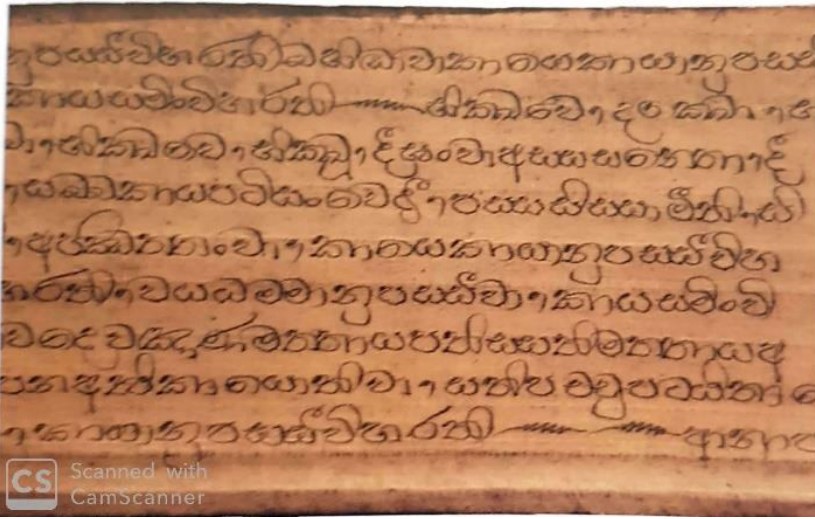 නුපසසීවිහරතිබහිඬාවාකායෙකායානුපසස
කායසමිංවිහරති භික්ඛවෙ
වා භික්ඛවෙ භික්ඛු දීඝංවාඅසසසනෙතා දී
සබ්බකායපටිසංවෙදී පසසසිසසාමීති සි
අජ්ඣතතංවා කායෙකායානුපසසීවිහ
හරති වයධමමානුපසසීවා කායසමිංවි
වදෙවඤාණමතතායපතිසසතිමතතායඅ
පනඅත්ථිකායොතිවා සතිපචචුපටඨිතා
පසසීවිහරති ආනාප
Scanned with
CamScanner